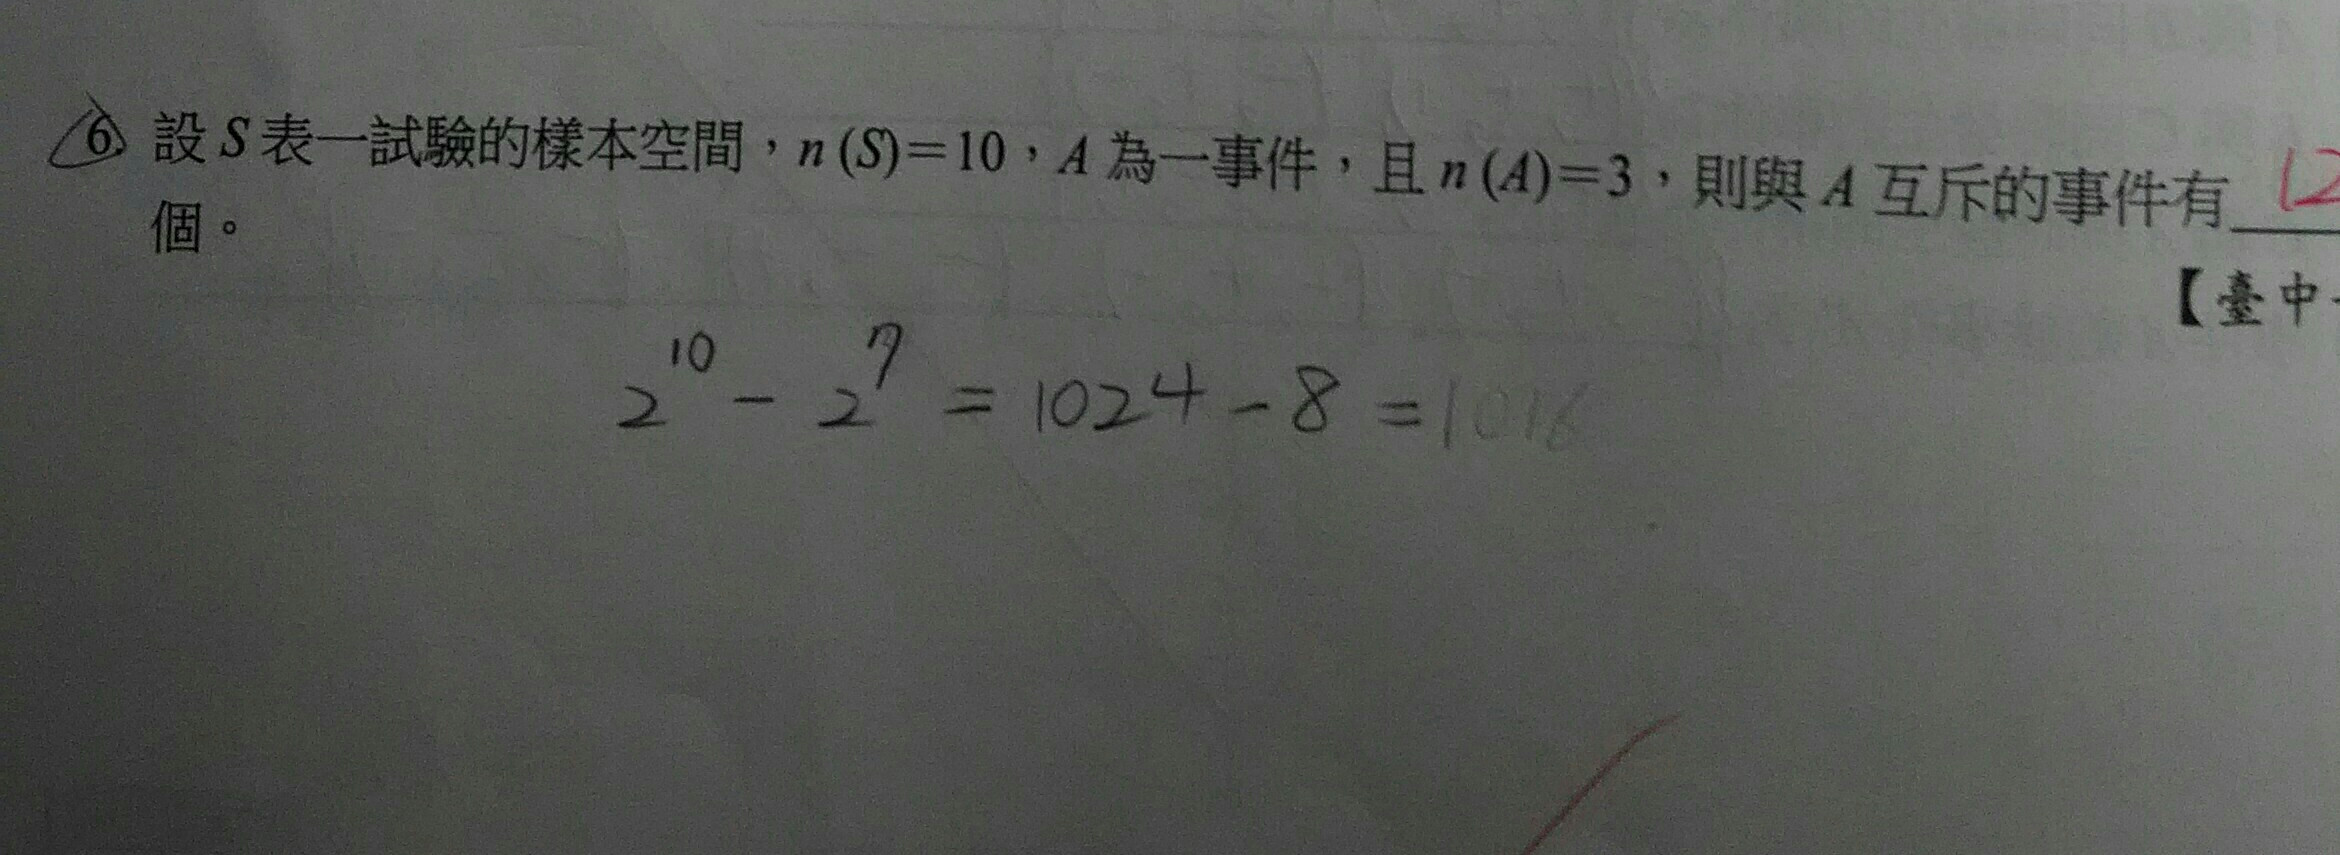 6. 設S表一試驗的樣本空間，n(S)=10，A為一事件，且n(A)=3，則與A互斥的事件有 12
個。
【臺中
2^10 - 2^7 = 1024 - 8 = 1016